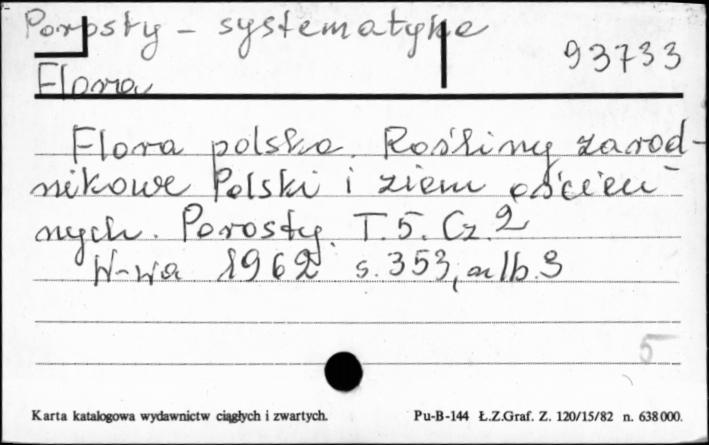 Porosty - systematyka
93733
Flora
Flora polska. Rośliny zarod-
nikowe Polski i ziem ościen-
nych. Porosty. T. 5. Cz. 2
W-wa 1962 s. 353, nlb. 3
5
Karta katalogowa wydawnictw ciągłych i zwartych. Pu-B-144 Ł.Z.Graf. Z. 120/15/82 n. 638000.